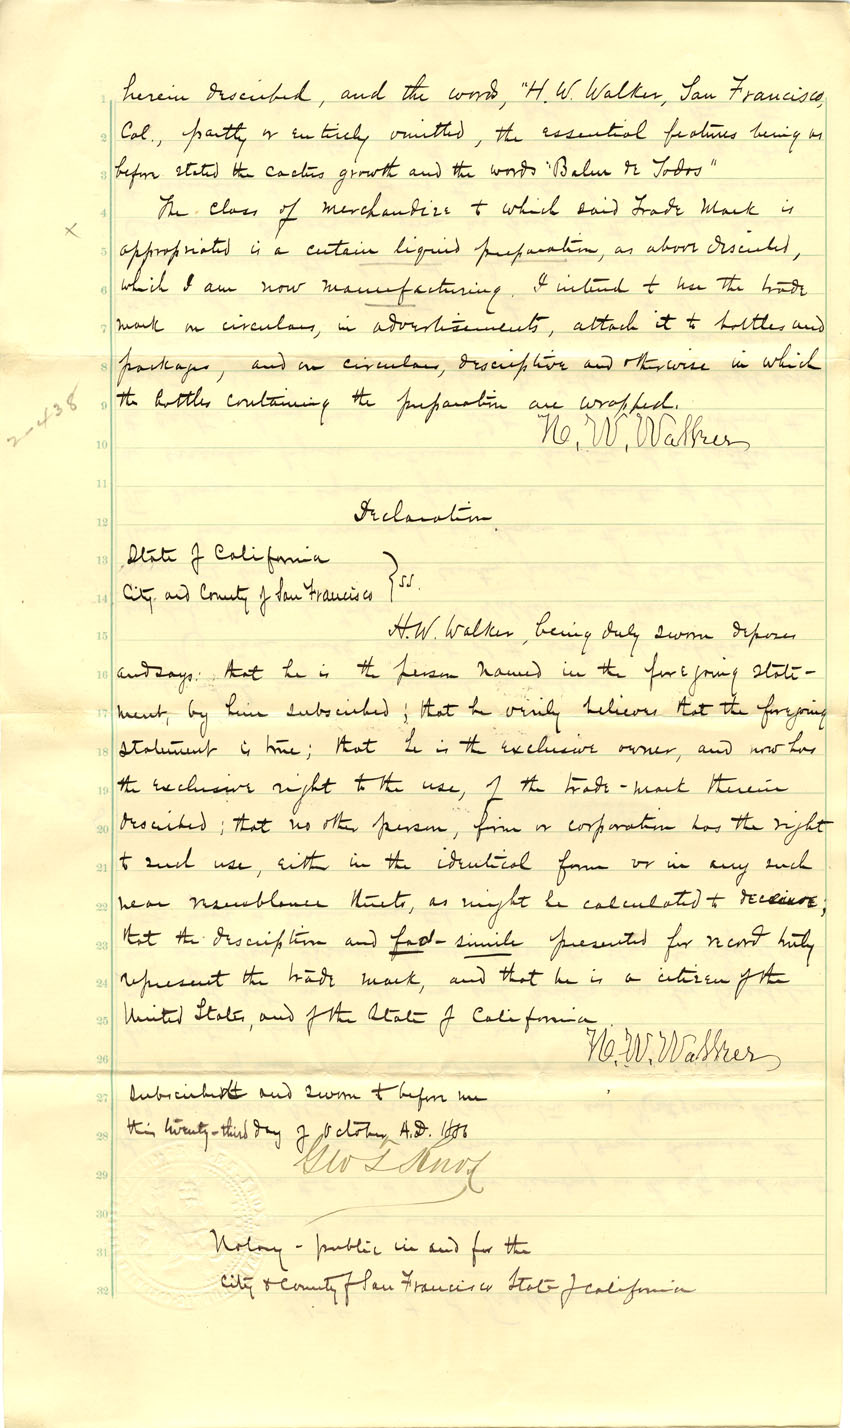 1 herein described, and the words, "H. W. Walker, San Francisco,
2 Cal., partly or entirely omitted, the essential features being as
3 before stated the cactus growth and the words "Balm de Todos"
4 The class of merchandize to which said Trade Mark is
x
5 appropriated is a certain liquid preparation, as above described,
6 which I am now manufacturing. I intend to use the trade
7 mark on circulars, in advertisements, attach it to bottles and
8 packages, and on circulars, descriptive and otherwise in which
2-438
9 the bottles containing the preparation are wrapped.
10 H. W. Walker
11
12 Declaration.
13 State of California
14 City and County of San Francisco } ss.
15 H. W. Walker, being duly sworn deposes
16 and says: that he is the person named in the foregoing state-
17 ment, by him subscribed; that he verily believes that the foregoing
18 statement is true; that he is the exclusive owner, and now has
19 the exclusive right to the use, of the trade-mark therein
20 described; that no other person, firm or corporation has the right
21 to such use, either in the identical form or in any such
22 near resemblance thereto, as might be calculated to deceive;
23 that the description and fac-simile presented for record truly
24 represent the trade mark, and that he is a citizen of the
25 United States, and of the State of California
26 H. W. Walker
27 Subscribed and sworn to before me
28 this twenty-third day of October A.D. 1886
29 Geo T Knox
30
31 Notary-public in and for the
32 City & County of San Francisco State of California